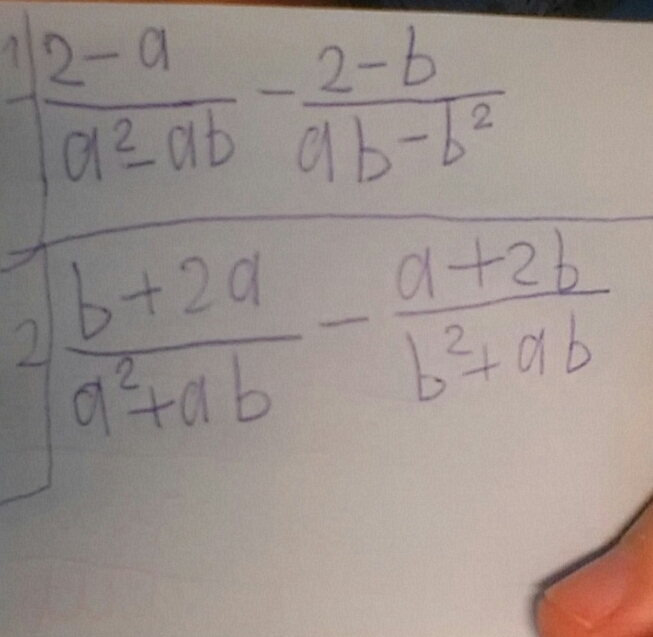 1) (2-a)/(a²-ab) - (2-b)/(ab-b²)
2) (b+2a)/(a²+ab) - (a+2b)/(b²+ab)